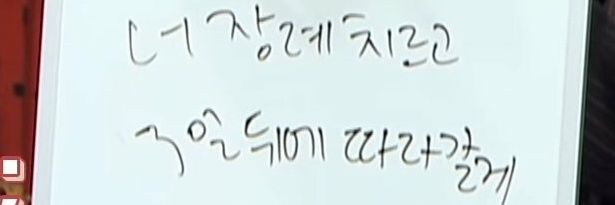 너 장례 치르고
3일 뒤에 따라갈게